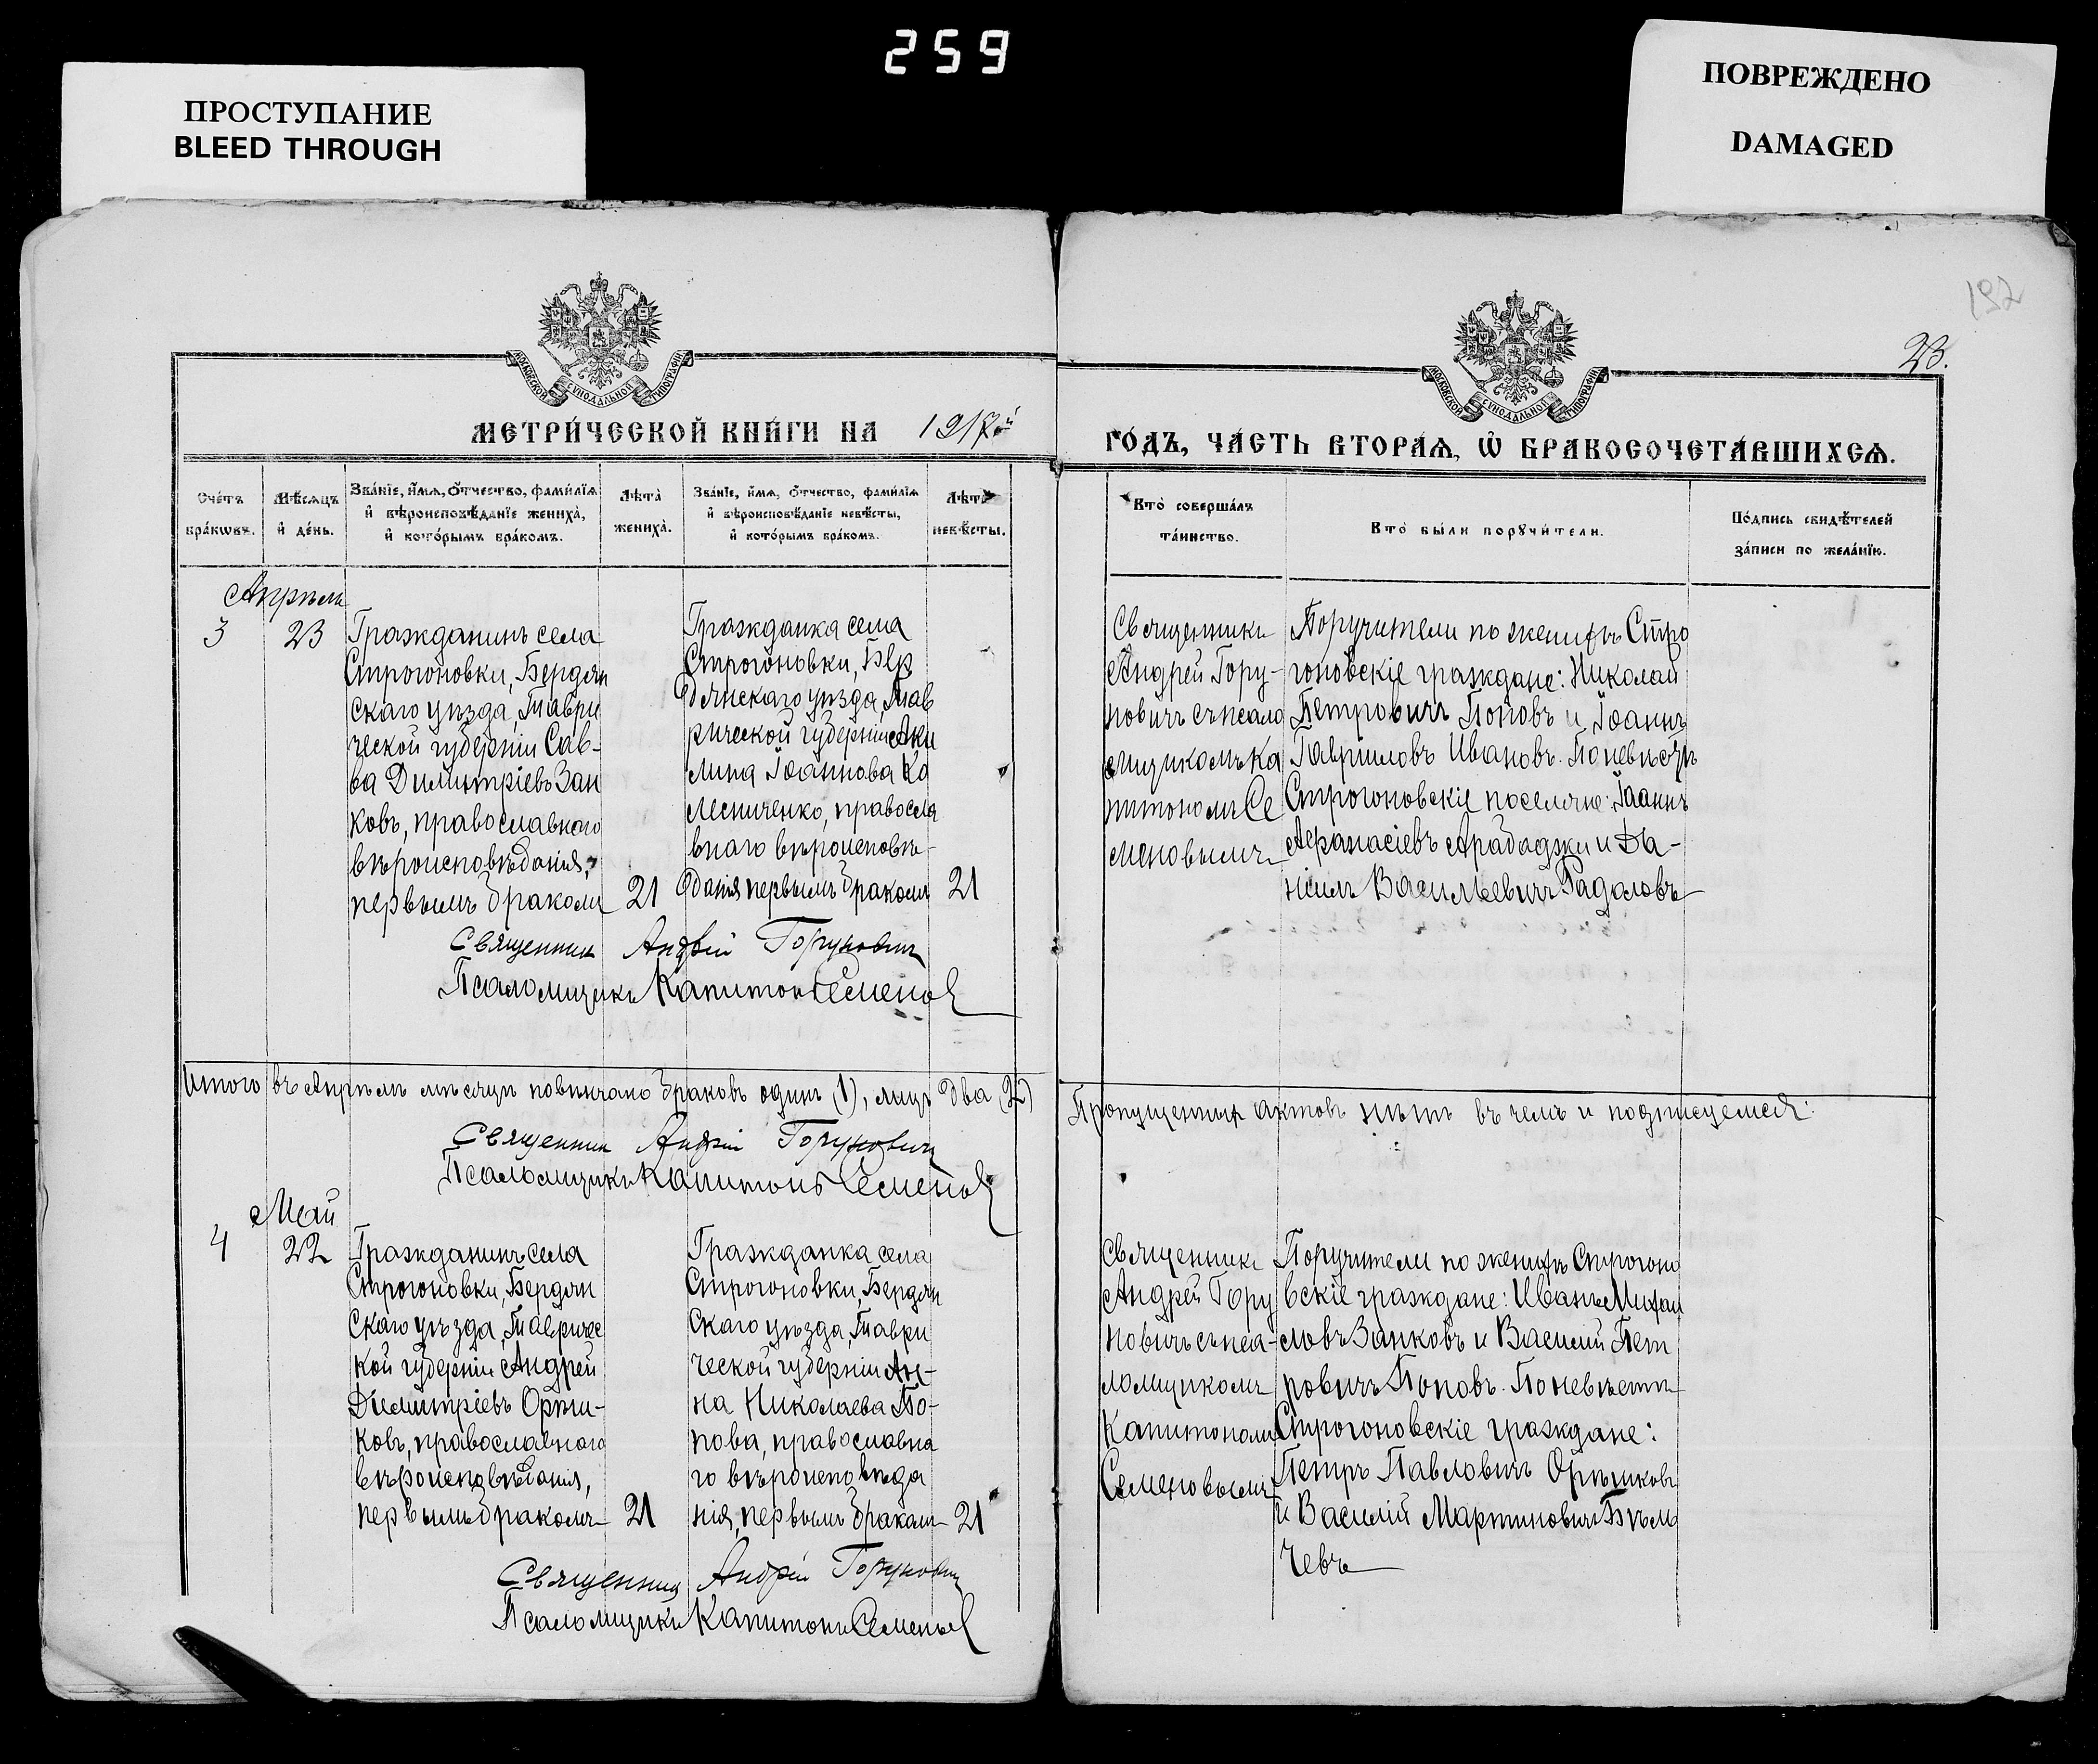 259
ПРОСТУПАНИЕ
BLEED THROUGH
ПОВРЕЖДЕНО
DAMAGED
192
23.
МОСКОВСКОЙ СУНОДАЛЬНОЙ ТИПОГРАФІИ
МОСКОВСКОЙ СУНОДАЛЬНОЙ ТИПОГРАФІИ
МЕТРИ́ЧЕСКОЙ КНИ́ГИ НА 1917й
ГО́ДЪ, ЧА́СТЬ ВТОРА́Ѧ, Ѡ҆ БРАКОСОЧЕТА́ВШИХСѦ.
Сче́тъ
бра́кѡвъ.
Мѣ́сѧцъ
и҆ де́нь.
Зва́нїе, и҆́мѧ, ѻ҆́тчество, фами́лїѧ
и҆ вѣроисповѣ́данїе жениха̀,
и҆ кото́рымъ бра́комъ.
Лѣ́та
жениха̀.
Зва́нїе, и҆́мѧ, ѻ҆́тчество, фами́лїѧ
и҆ вѣроисповѣ́данїе невѣ́сты,
и҆ кото́рымъ бра́комъ.
Лѣ́та
невѣ́сты.
Кто̀ соверша́лъ
та́инство.
Кто̀ бы́ли порꙋчи́тели.
По́дпись свидѣ́телей
за́писи по жела́нїю.
Апрѣль
3
23
Гражданинъ села
Строгоновки, Бердян
скаго уѣзда, Таври
ческой губерніи Сав-
ва Димитріевъ Зан
ковъ, православнаго
вѣроисповѣданія,
первымъ бракомъ
21
Гражданка села
Строгоновки, Бер
дянскаго уѣзда, Тав
рической губерніи Аки
лина Іоаннова Ко
лесниченко, правосла
внаго вѣроисповѣ-
данія первымъ бракомъ
21
Священникъ
Андрей Гору-
новичъ съ псало
мщикомъ Ка
питономъ Се
меновымъ
Поручители по женихѣ Стро
гоновскіе граждане: Николай
Петровичъ Поповъ и Іоаннъ
Гавриловъ Ивановъ. По невѣстѣ
Строгоновскіе поселяне: Іоаннъ
Афанасіевъ Арабаджи и Да-
ніилъ Васильевичъ Радоловъ
Священникъ Андрей Горунович
Псаломщикъ Капитонъ Семенов
Итого въ Апрѣлѣ мѣсяцѣ повѣнчано браковъ одинъ (1), лицъ два (2)
Пропущенныхъ актовъ нѣтъ въ чемъ и подписуемся:
Священник Андрей Горунович
Псаломщикъ Капитонъ Семенов
Май
4
22
Гражданинъ села
Строгоновки, Бердян
скаго уѣзда, Тавричес
кой губерніи Андрей
Димитріевъ Орѣш-
ковъ, православнаго
вѣроисповѣданія,
первымъ бракомъ
21
Гражданка села
Строгоновки, Бердян
скаго уѣзда, Таври
ческой губерніи Ан-
на Николаева По-
пова, православна
го вѣроисповѣда
нія, первымъ бракомъ
21
Священникъ
Андрей Гору
новичъ съ пса-
ломщикомъ
Капитономъ
Семеновымъ
Поручители по женихѣ Строгоно
вскіе граждане: Иванъ Михаи
ловъ Занковъ и Василій Пет
ровичъ Поповъ. По невѣстѣ
Строгоновскіе граждане:
Петръ Павловичъ Орѣшковъ
и Василій Мартиновичъ Бѣль
чевъ
Священник Андрей Горунович
Псаломщикъ Капитонъ Семенов